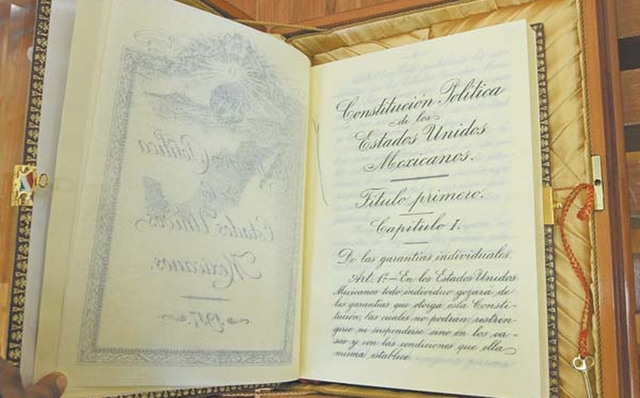 Constitución Política
de los
Estados Unidos
Mexicanos.
Título primero.
Capítulo I.
De las garantías individuales.
Art. 1º— En los Estados Unidos
Mexicanos todo individuo gozará de
las garantías que otorga esta Consti-
tución, las cuales no podrán restrin-
girse ni suspenderse, sino en los ca-
sos y con las condiciones que ella
misma establece.